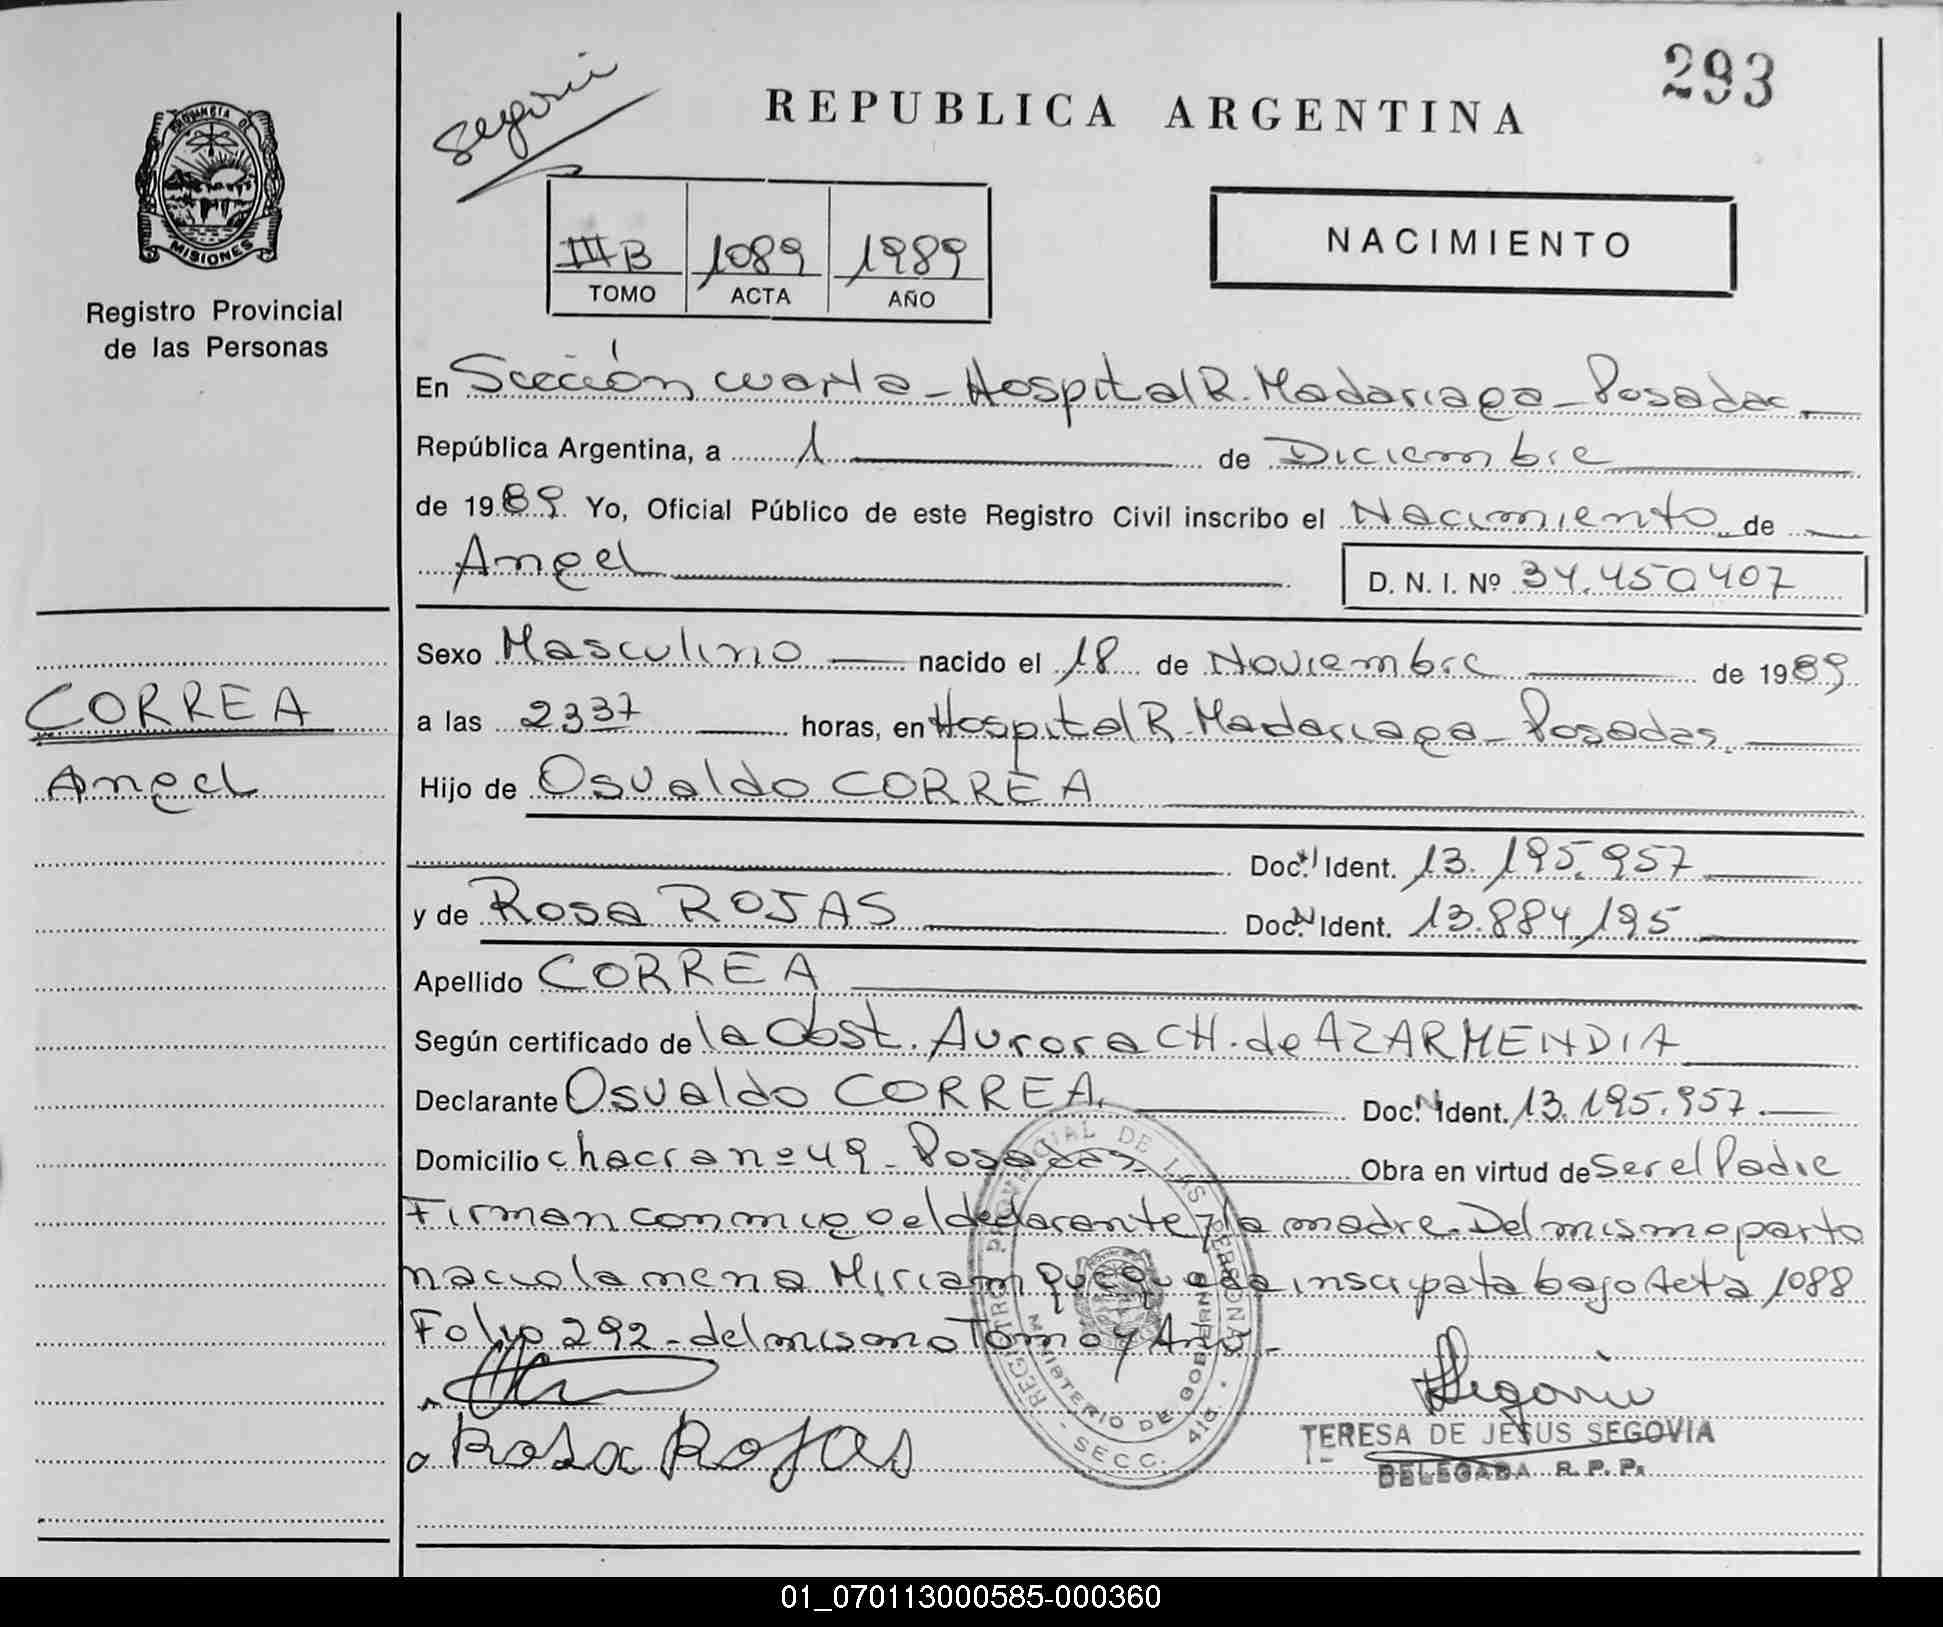 293
Segovia
REPUBLICA ARGENTINA
PROVINCIA DE MISIONES
Registro Provincial
de las Personas
III B 1089 1989
TOMO ACTA AÑO
NACIMIENTO
En Sección cuarta - Hospital R. Madariaga - Posadas.
República Argentina, a 1 de Diciembre
de 1989. Yo, Oficial Público de este Registro Civil inscribo el Nacimiento de
Angel D. N. I. Nº 34.450407
Sexo Masculino nacido el 18 de Noviembre de 1989
CORREA
a las 2337 horas, en Hospital R. Madariaga - Posadas.
Angel
Hijo de Osvaldo CORREA
Doc. N Ident. 13.195.957
y de Rosa ROJAS Doc. N Ident. 13.884,195
Apellido CORREA
Según certificado de la Obst. Aurora CH. de AZARMENDIA
Declarante Osvaldo CORREA. Doc. N Ident. 13.195.957.
Domicilio chacra nº 49 - Posadas Obra en virtud de Ser el Padre
Firman conmigo el declarante y la madre. Del mismo parto
nacio la nena Miriam que queda inscripta bajo Acta 1088
Folio 292 - del mismo Tomo y Año -
REGISTRO PROVINCIAL DE LAS PERSONAS
MINISTERIO DE GOBIERNO
- SECC. 4ta. -
Segovia
Rosa Rojas
TERESA DE JESUS SEGOVIA
DELEGADA R. P. P.
01_070113000585-000360